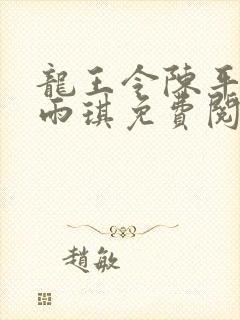 龍王令陳平
雨琪免費閱
趙敏